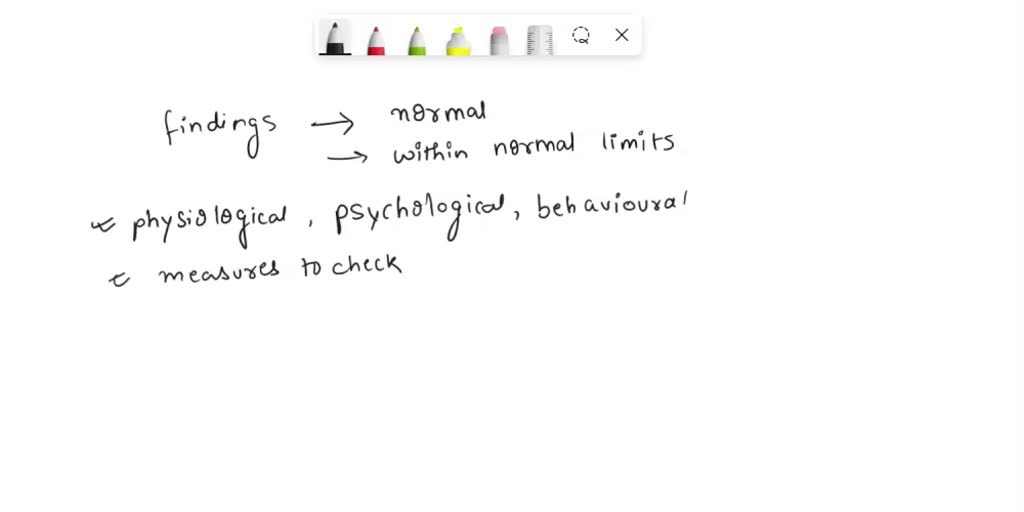 findings → normal
→ within normal limits
physiological, psychological, behavioural
measures to check